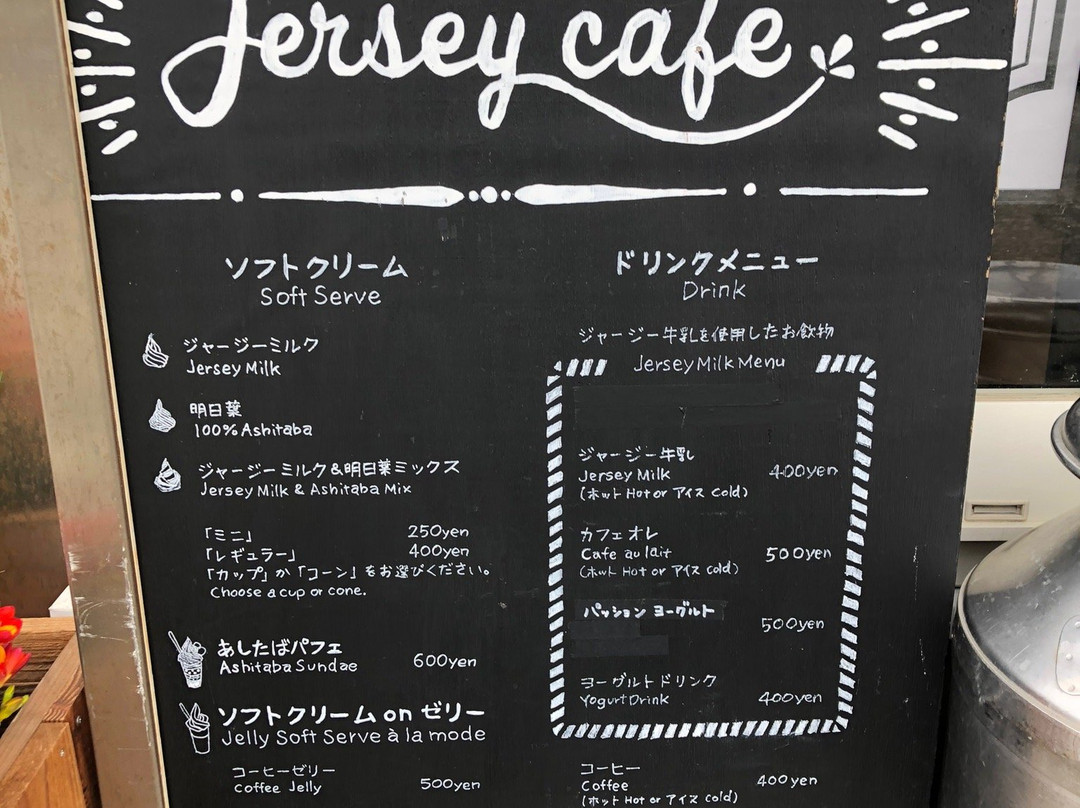 Jersey cafe
ソフトクリーム
Soft Serve
ジャージーミルク
Jersey Milk
明日葉
100% Ashitaba
ジャージーミルク&明日葉ミックス
Jersey Milk & Ashitaba Mix
「ミニ」 250yen
「レギュラー」 400yen
「カップ」か「コーン」をお選びください。
Choose a cup or cone.
あしたばパフェ
Ashitaba Sundae 600yen
ソフトクリーム on ゼリー
Jelly Soft Serve à la mode
コーヒーゼリー
Coffee Jelly 500yen
ドリンクメニュー
Drink
ジャージー牛乳を使用したお飲物
Jersey Milk Menu
ジャージー牛乳
Jersey Milk 400yen
(ホット Hot or アイス cold)
カフェオレ
Cafe au lait 500yen
(ホット Hot or アイス cold)
パッション ヨーグルト
500yen
ヨーグルトドリンク
Yogurt Drink 400yen
コーヒー
Coffee 400yen
(ホット Hot or アイス cold)